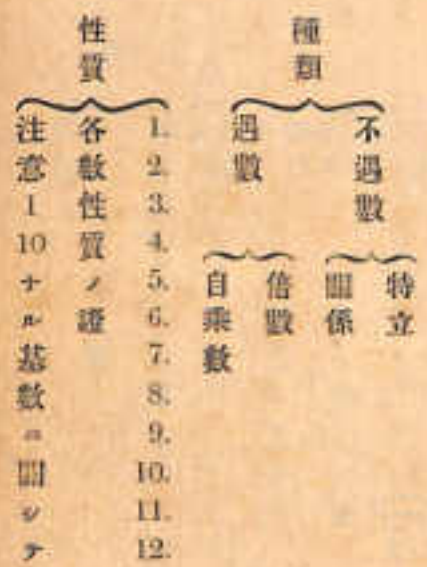 種類
不遇數
特立
關係
遇數
倍數
自乘數
性質
1.
2.
3.
4.
5.
6.
7.
8.
9.
10.
11.
12.
各數性質ノ證
注意I10ナル基數ニ關シテ